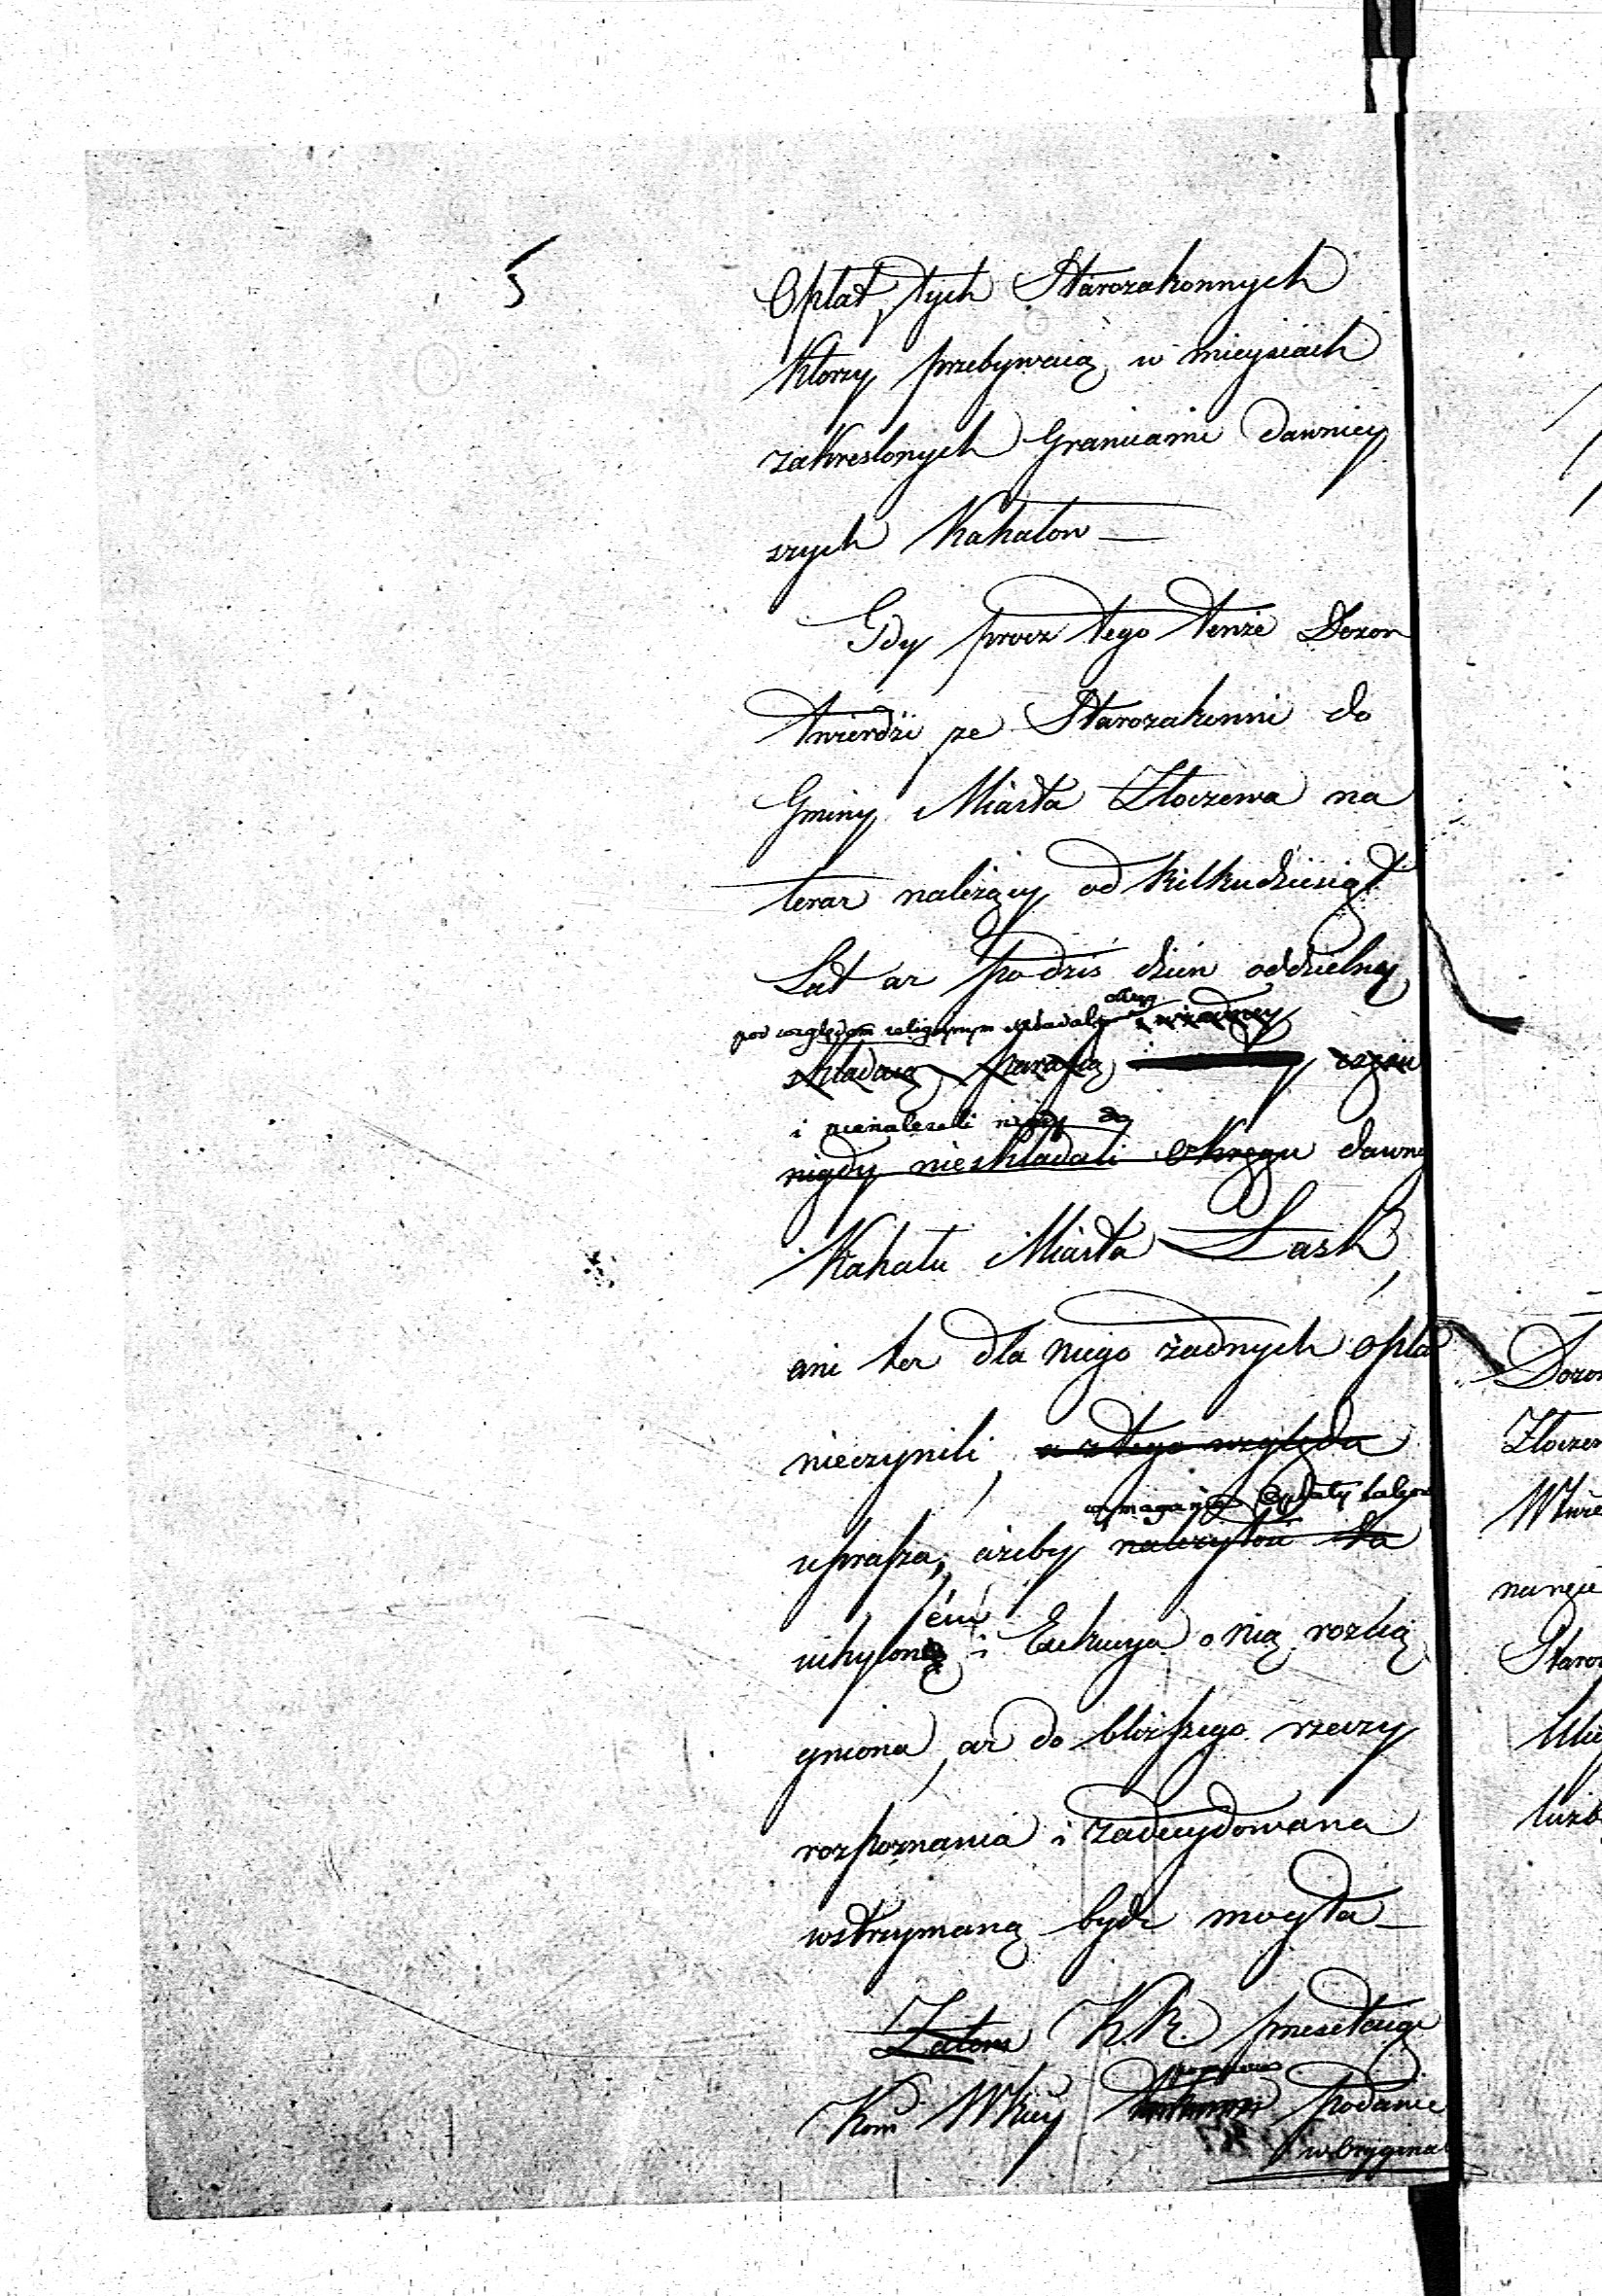 5
Opłat, tych Starozakonnych
ktorzy przebywaią w mieyscach
zakreslonych Granicami dawniey
szych Kahałow —
Gdy procz tego tenże Dozor
twierdzi że Starozakonni do
Gminy Miasta Złoczewa na
teraz należący od kilkudziesiąt
Lat aż po dziś dzień oddzielny
pod względem religiynym składali okrąg
składaią parafią
i nienależeli nigdy do
nigdy nieskładali okręgu dawne
Kahału Miasta Łask,
ani też dla niego żadnych opła
nieczynili, a z tego względu
wymaganie Opłaty takjow
uprasza, ażeby należytość ta
éiu
uchyloną i Exekucya o nią rozcią
gniona, aż do bliższego rzeczy
rozpoznania i zadecydowana
wstrzymaną bydz mogła —
Zatem K. R. przesełaiąc
Kom Wkiey podanie
w Orygina
Dozor
Złoczew
Staro